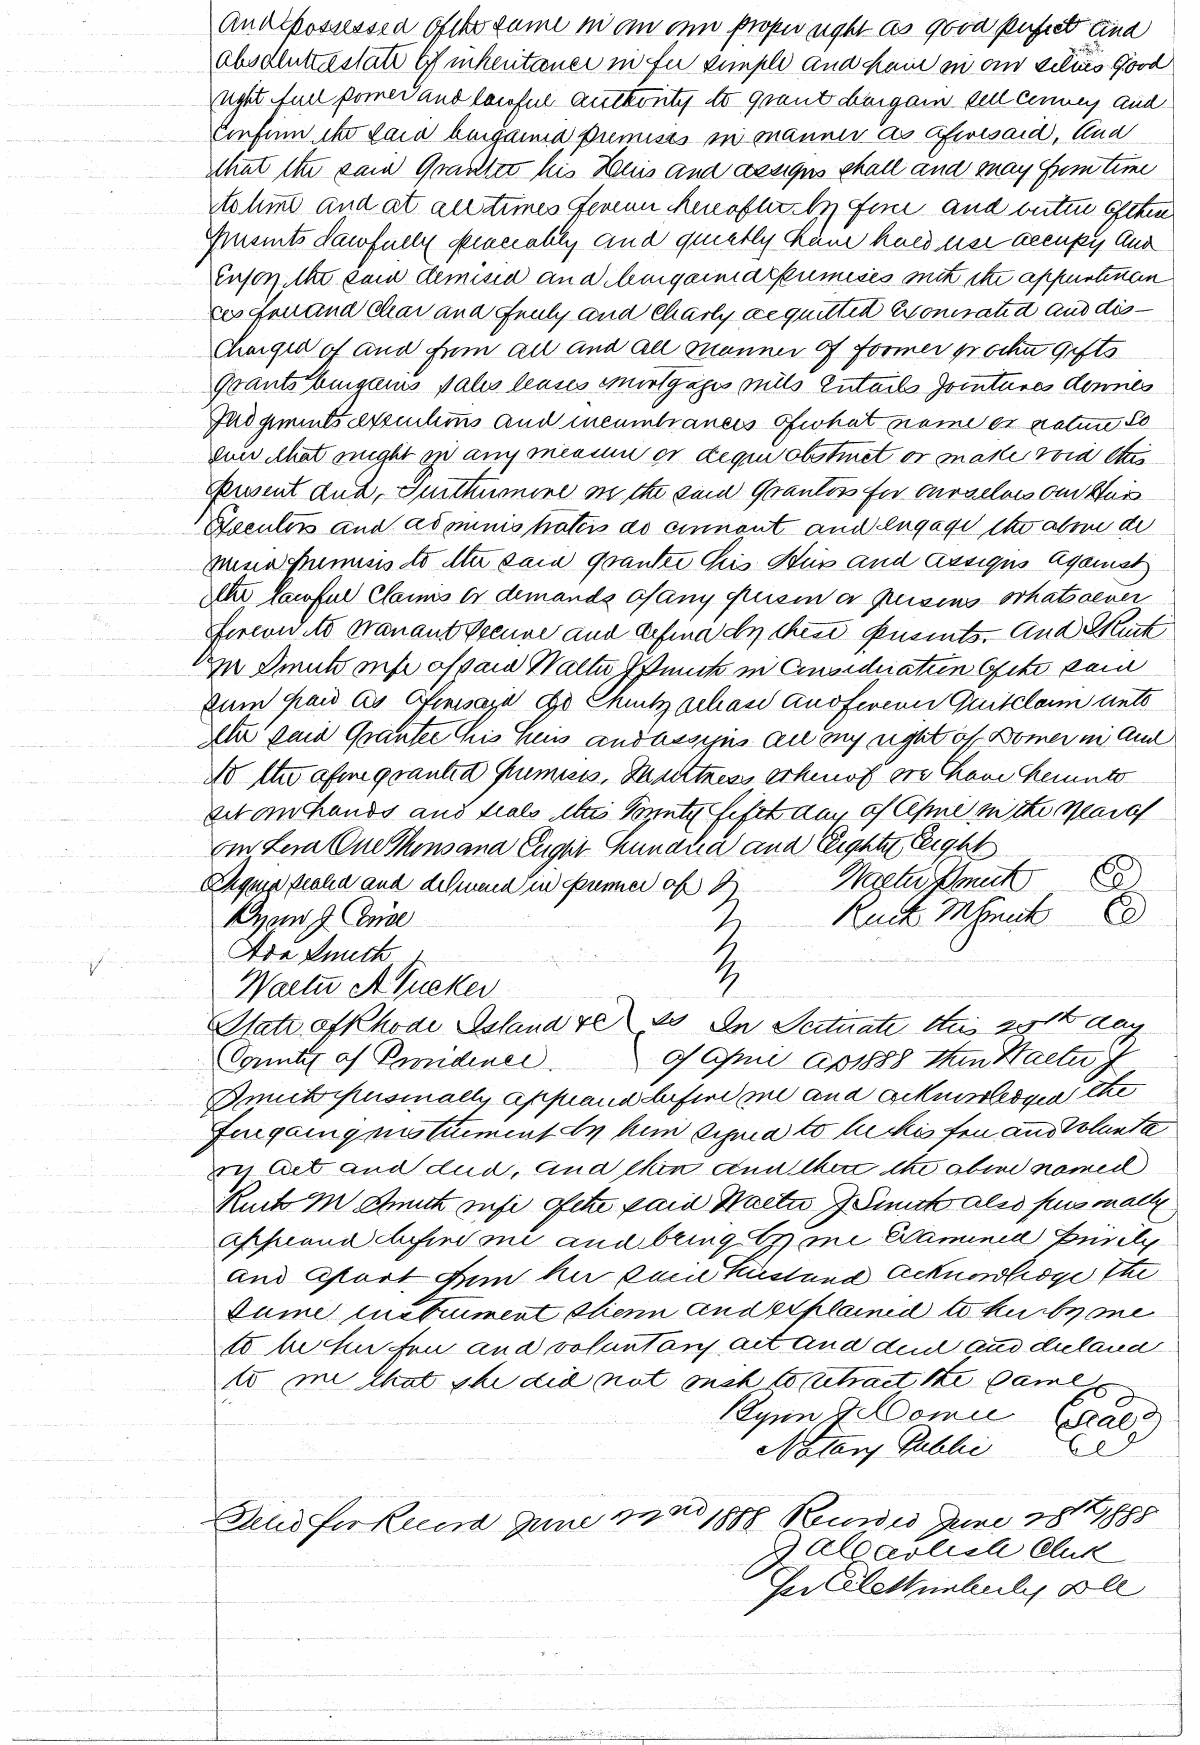 and possessed of the same in our own proper right as good perfect and
absolute estate of inheritance in fee simple and have in our selves good
right full power and lawful authority to grant bargain sell convey and
confirm the said bargained premises in manner as aforesaid, And
that the said Grantee his Heirs and assigns shall and may from time
to time and at all times forever hereafter by force and virtue of these
presents lawfully peaceably and quietly have hold use occupy and
enjoy the said demised and bargained premises with the appurtenan
ces free and clear and freely and clearly acquitted exonerated and dis-
charged of and from all and all manner of former or other gifts
grants bargains sales leases mortgages wills entails jointures dowries
judgments executions and incumbrances of what name or nature so
ever that might in any measure or degree obstruct or make void this
present deed, Furthermore we the said Grantors for ourselves our Heirs
Executors and administrators do covenant and engage the above de
mised premises to the said grantee his Heirs and assigns against
the lawful claims or demands of any person or persons whatsoever
forever to warrant secure and defend by these presents. And I Ruth
M Smith wife of said Walter J Smith in consideration of the said
sum paid as aforesaid do hereby release and forever Quitclaim unto
the said Grantee his heirs and assigns all my right of Dower in and
to the afore granted premises, In witness whereof we have hereunto
set our hands and seals this twenty fifth day of April in the year of
our Lord One Thousand Eight hundred and Eighty Eight
Signed sealed and delivered in presence of Walter J Smith
Ruth M Smith
Ada Smith
Walter A Tucker
State of Rhode Island &c ss In Scituate this 25th day
County of Providence. of April AD 1888 then Walter J
Smith personally appeared before me and acknowledged the
foregoing instrument by him signed to be his free and volunta
ry act and deed, and then and there the above named
Ruth M Smith wife of the said Walter J Smith also personally
appeared before me and being by me Examined privily
and apart from her said husband acknowledge the
same instrument shewn and explained to her by me
to be her free and voluntary act and deed and declared
to me that she did not wish to retract the same
(Seal)
Notary Public
Filed for Record June 22nd 1888 Recorded June 28th 1888
Clerk